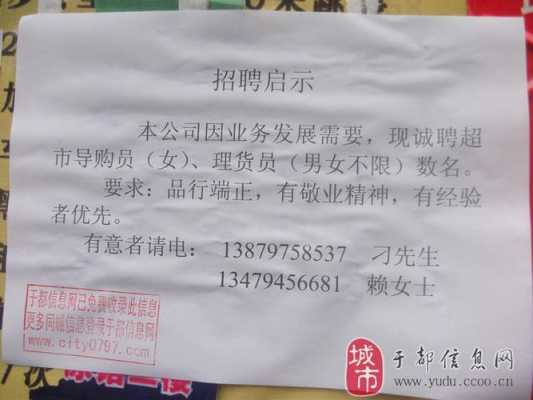 招聘启示
本公司因业务发展需要，现诚聘超
市导购员（女）、理货员（男女不限）数名。
要求：品行端正，有敬业精神，有经验
者优先。
有意者请电： 13879758537 刁先生
13479456681 赖女士
于都信息网已免费收录此信息
更多同城信息登录于都信息网
www.city0797.com
城市 于都信息网
www.yudu.ccoo.cn